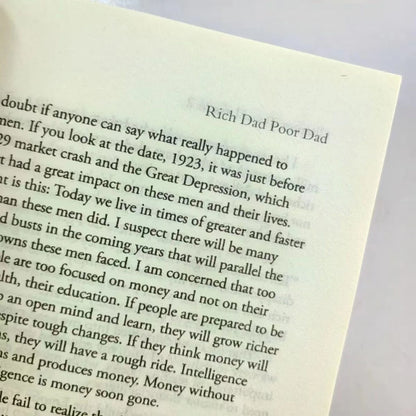 Rich Dad Poor Dad
doubt if anyone can say what really happened to
men. If you look at the date, 1923, it was just before
29 market crash and the Great Depression, which
t had a great impact on these men and their lives.
nt is this: Today we live in times of greater and faster
han these men did. I suspect there will be many
d busts in the coming years that will parallel the
owns these men faced. I am concerned that too
le are too focused on money and not on their
lth, their education. If people are prepared to be
p an open mind and learn, they will grow richer
espite tough changes. If they think money will
ns, they will have a rough ride. Intelligence
ns and produces money. Money without
ligence is money soon gone.
le fail to realize th